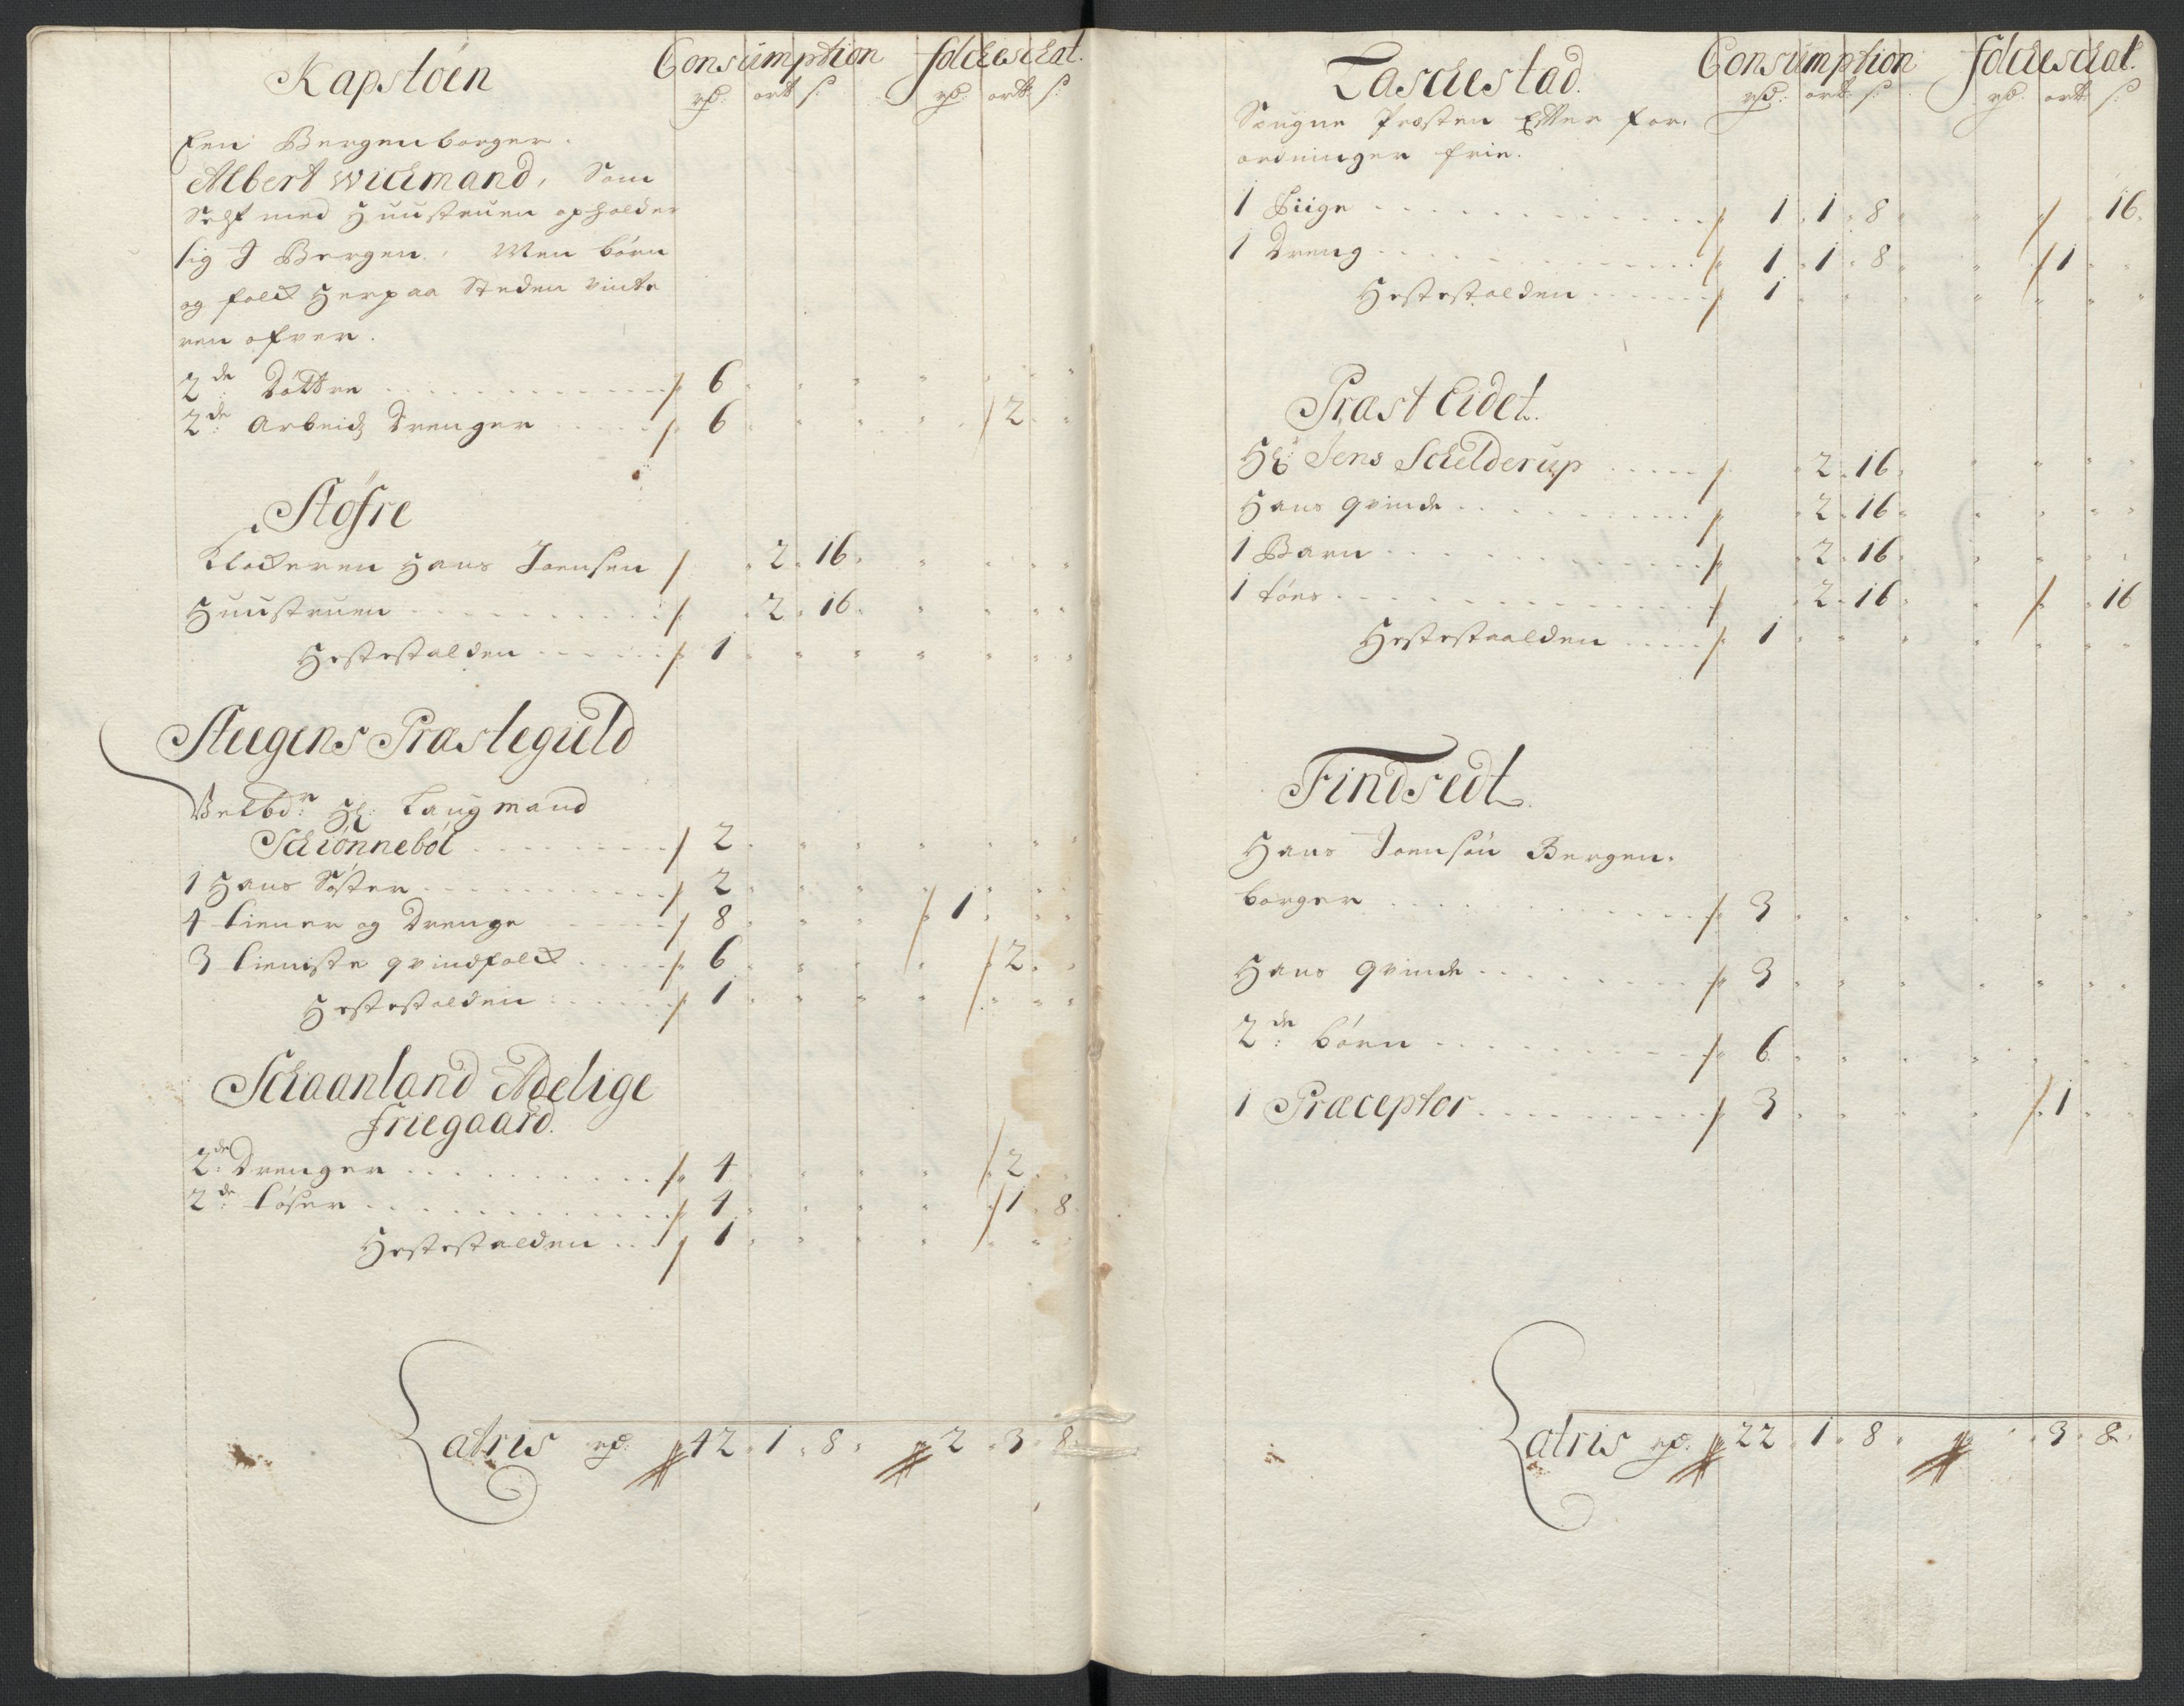 Kapstøen Consumption folcheschat.
rd: ort s: rd: ort: s:
Een Bergenborger.
Albert Wichmand, Som
Self med Huustruen opholder
sig J Bergen, Men børn
og folck Her paa Steden vinte
ren ofver.
2de Døttre 6
2de Arbeids Drenger 6 2
Støfre
Klockeren Hans Joensen 2 16
Huustruen 2 16
Hestestalden 1
Steegens Præstegield
Velbdr: Hr: Laugmand
Schiønnebøl 2
1 Hans Søster 2
4 tiener og Drenge 8 1
3 tieniste qvindfolck 6 2
Hestestalden 1
Schaanland Adelige
friegaard.
2de Drenger 4 2
2de tøser 4 1 8
Hestestalden 1
Latris rd: 42 1 8 2 3 8
Laschestad. Consumption folcheschat.
rd: ort: s: rd: ort: s:
Sougne Præsten Efter for-
ordninger frie.
1 Piige 1 1 8 16
1 Dreng 1 1 8 1
Hestestalden 1
Præst Eidet.
Hr: Jens Schelderup 2 16
Hans qvinde 2 16
1 Barn 2 16
1 tøes 2 16 16
Hestestaalden 1
Findsedt
Hans Joensøn Bergen-
borger 3
Hans qvinde 3
2de børn 6
1 Præceptor 3 1
Latris rd: 22 1 8 3 8